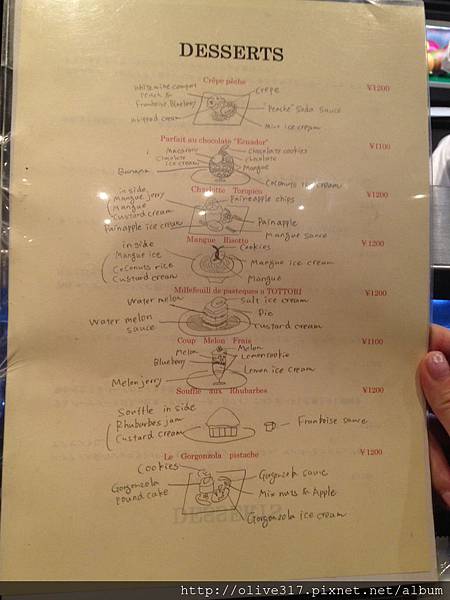 DESSERTS
Crêpe pêche
¥1200
White wine compot
Peach &
Framboise, Blueberry
Whipped cream
Crepe
"Peache" Soda Sauce
Mint ice cream
Parfait au chocolate "Ecuador"
¥1100
Macarons
Chocolate
ice cream
Banana
Chocolate cookies
chocolate
Mangue
Coconuts ice cream
Charlotte Toropico
¥1200
in side
Mangue jerry
Mangue
Custard cream
Painapple ice cream
Paineapple chips
Painapple
Mangue sauce
Mangue Risotto
¥1200
in side
Mangue ice
Coconuts rice
Custard cream
Cookies
Mangue ice cream
Mangue
Millefeuill de pasteques a TOTTORI
¥1200
Water melon
Water melon
sauce
Salt ice cream
Pie
Custard cream
Coup Melon Frais
¥1100
Melon
Blueberry
Melon jerry
Melon
Lemon cookie
Lemon ice cream
Souffle aux Rhubarbes
¥1200
Souffle in side
Rhubarbes jam
Custard cream
Framboise sauce
Le Gorgonzola pistache
¥1200
Cookies
Gorgonzola
pound cake
Gorgonzola sauce
Mix nuts & Apple
Gorgonzola ice cream
http://olive317.pixnet.net/album